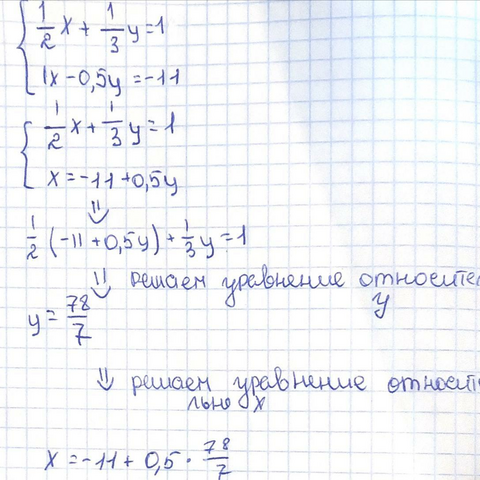 1/2 x + 1/3 y = 1
1x - 0,5y = -11
1/2 x + 1/3 y = 1
x = -11 + 0,5y
⇓
1/2 (-11 + 0,5y) + 1/3 y = 1
⇓ решаем уравнение относите
y
y = 78/7
⇓ решаем уравнение относит
льно x
x = -11 + 0,5 · 78/7